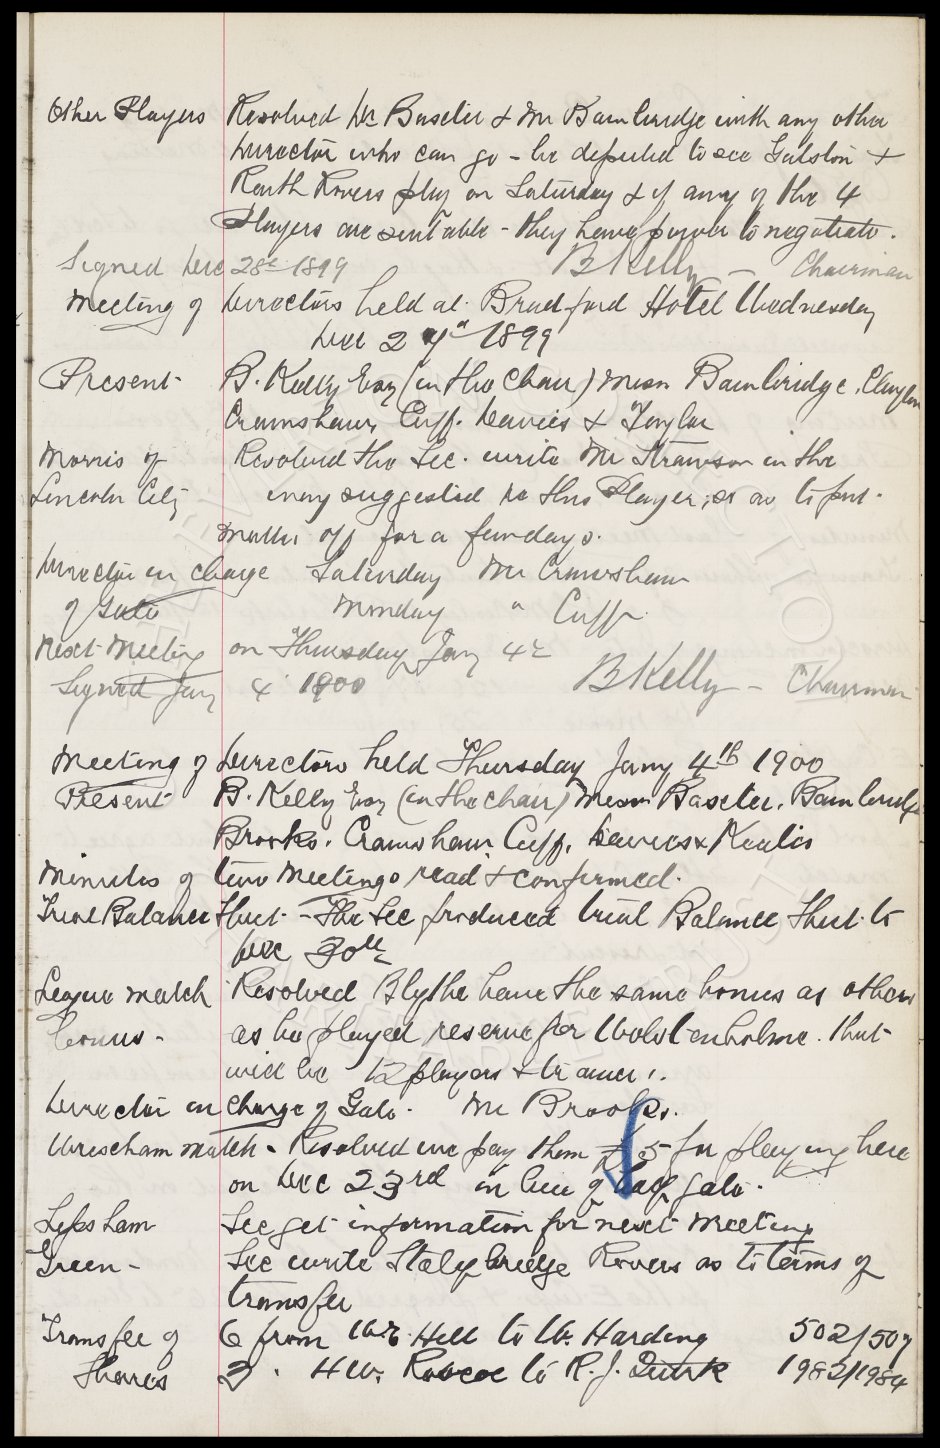 Other Players Resolved Dr Baxter & Mr Bainbridge with any other
Director who can go - be deputed to see Galston &
Raith Rovers play on Saturday & if any of the 4
Players are suitable - they have power to negotiate.
Signed Dec 28th 1899 B Kelly - Chairman
Meeting of Directors held at Bradford Hotel Wednesday
Dec 27th 1899
Present B. Kelly Esq (in the Chair) Messrs Bainbridge, Clayton
Crawshaw, Cuff, Davies & Taylor
Morris of Resolved the Sec. write Mr Strawson in the
Lincoln City way suggested re this Player, so as to put
matter off for a few days.
Director in charge Saturday Mr Crawshaw
of Gate Monday " Cuff
Next Meeting on Thursday Jany 4th
Signed Jany 4th 1900 B Kelly - Chairman
Meeting of Directors held Thursday Jany 4th 1900
Present B. Kelly Esq (in the chair) Messrs Baxter, Bainbridge
Brooks, Crawshaw Cuff, Davies & Keates
Minutes of two Meetings read & confirmed.
Trial Balance Sheet - The Sec produced trial Balance Sheet to
Dec 30th
League match Resolved Blythe have the same bonus as others
bonus - as he played reserve for Wolstenholme. that
will be 12 players & trainer.
Director in charge of Gate. Mr Brooks.
Wrexham match - Resolved we pay them £5 for playing here
on Dec 23rd in lieu of half gate.
Lipsham Sec get information for next Meeting
Green - Sec write Stalybridge Rovers as to terms of
transfer
Transfer of 6 from Hill to W. Harding 502/507
Shares 3 . H W. Roscoe to R. J. Quirk 1982/1984